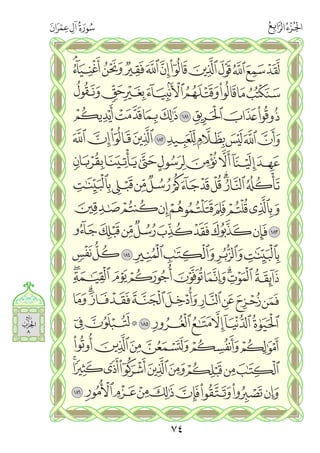 الجُزْءُ الرَّابِعُ
سُورَةُ آلِ عِمْرَانَ
لَّقَدْ سَمِعَ ٱللَّهُ قَوْلَ ٱلَّذِينَ قَالُوٓاْ إِنَّ ٱللَّهَ فَقِيرٌ وَنَحْنُ أَغْنِيَآءُ
سَنَكْتُبُ مَا قَالُواْ وَقَتْلَهُمُ ٱلْأَنۢبِيَآءَ بِغَيْرِ حَقٍّ وَنَقُولُ
ذُوقُواْ عَذَابَ ٱلْحَرِيقِ ١٨١ ذَٰلِكَ بِمَا قَدَّمَتْ أَيْدِيكُمْ
وَأَنَّ ٱللَّهَ لَيْسَ بِظَلَّامٍ لِّلْعَبِيدِ ١٨٢ ٱلَّذِينَ قَالُوٓاْ إِنَّ ٱللَّهَ
عَهِدَ إِلَيْنَآ أَلَّا نُؤْمِنَ لِرَسُولٍ حَتَّىٰ يَأْتِيَنَا بِقُرْبَانٍ
تَأْكُلُهُ ٱلنَّارُ ۗ قُلْ قَدْ جَآءَكُمْ رُسُلٌ مِّن قَبْلِى بِٱلْبَيِّنَٰتِ
وَبِٱلَّذِى قُلْتُمْ فَلِمَ قَتَلْتُمُوهُمْ إِن كُنتُمْ صَٰدِقِينَ
١٨٣ فَإِن كَذَّبُوكَ فَقَدْ كُذِّبَ رُسُلٌ مِّن قَبْلِكَ جَآءُو
بِٱلْبَيِّنَٰتِ وَٱلزُّبُرِ وَٱلْكِتَٰبِ ٱلْمُنِيرِ ١٨٤ كُلُّ نَفْسٍ
ذَآئِقَةُ ٱلْمَوْتِ ۗ وَإِنَّمَا تُوَفَّوْنَ أُجُورَكُمْ يَوْمَ ٱلْقِيَٰمَةِ ۖ
فَمَن زُحْزِحَ عَنِ ٱلنَّارِ وَأُدْخِلَ ٱلْجَنَّةَ فَقَدْ فَازَ ۗ وَمَا
ٱلْحَيَوٰةُ ٱلدُّنْيَآ إِلَّا مَتَٰعُ ٱلْغُرُورِ ١٨٥ ۞ لَتُبْلَوُنَّ فِىٓ
أَمْوَٰلِكُمْ وَأَنفُسِكُمْ وَلَتَسْمَعُنَّ مِنَ ٱلَّذِينَ أُوتُواْ
ٱلْكِتَٰبَ مِن قَبْلِكُمْ وَمِنَ ٱلَّذِينَ أَشْرَكُوٓاْ أَذًى كَثِيرًا ۚ
وَإِن تَصْبِرُواْ وَتَتَّقُواْ فَإِنَّ ذَٰلِكَ مِنْ عَزْمِ ٱلْأُمُورِ ١٨٦
الحِزْب
٨
٧٤